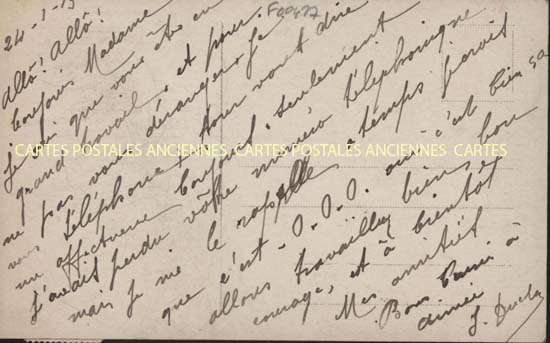 24-1-13
Allô! Allô!
Bonjour Madame
Je sais que vous êtes en
grand travail, et pour
ne pas vous déranger je
vous téléphone pour vous dire
un affectueux bonjour. seulement
J'avais perdu vôtre numéro téléphonique
mais je me le rappelle à temps
que c'est. O.O.O. oui c'est bien sa
allons travaillez bien, bon
courage, et à bientot
Mes amitiés
Bons baisers à
J. Duclo
F00477
CARTES POSTALES ANCIENNES CARTES POSTALES ANCIENNES CARTES